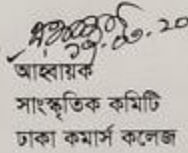 আহবায়ক
সাংস্কৃতিক কমিটি
ঢাকা কমার্স কলেজ